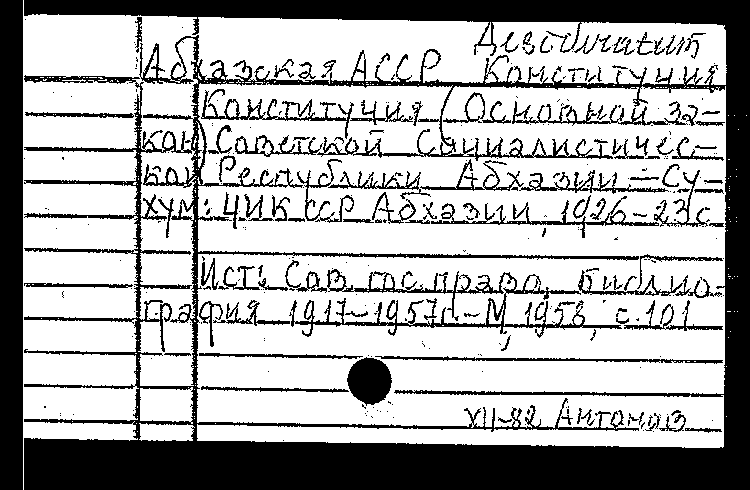 Desideratum
Абхазская АССР. Конституция
Конституция (Основной за-
кон) Советской Социалистичес-
кой Республики Абхазии. – Су-
хум: ЦИК ССР Абхазии, 1926 – 23 с
Ист: Сов. гос. право. Библио-
графия 1917–1957г. – М, 1958, с. 101
XII-82 Антонов